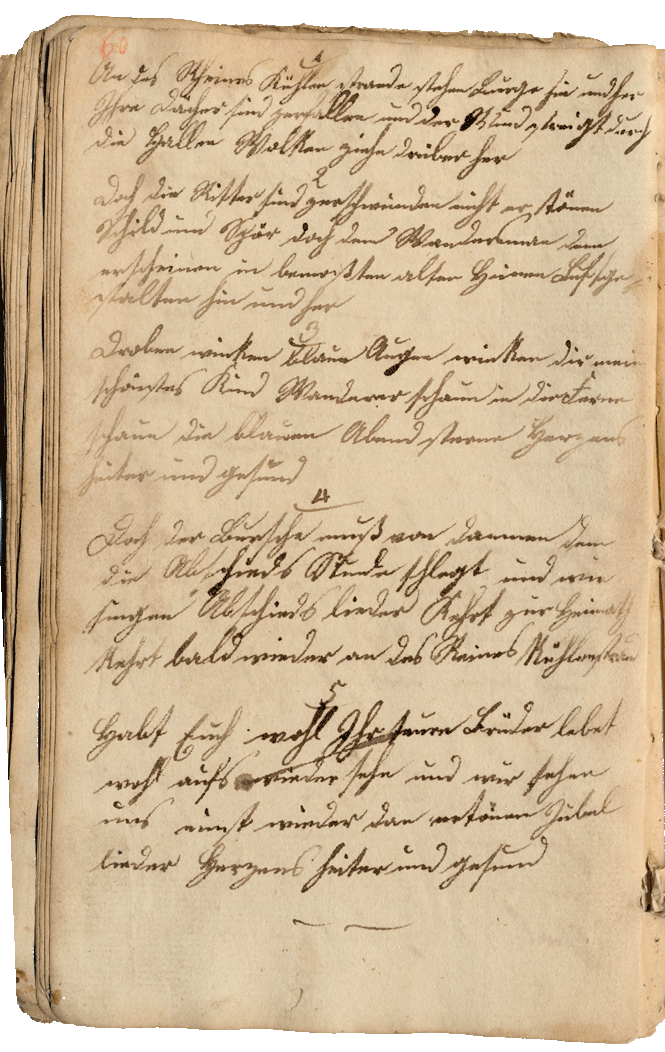 60
1
An des Rheines Kühlen strande stehen Burge hin und her
Ihre Dächer sind zerfallen und der Wind streigt durch
die Hallen Wolken ziehn drüber her
2
Doch die Ritter sind zerschwunden nicht er tönen
Schild und Spär doch dem Wandersman dem
erscheinen in bemoßten alten Heinen Luftige
stalten hin und her
3
Droben winken blaue Augen winken dir mein
schönstes Kind Wanderer schaun in die Ferne
schaun die blauen Abend sterne Herzens
heiter und gesund
4
Doch der Bursche muß von dannen dem
die Abschieds Stude schlegt und wir
singen Abschieds lieder Kehrt zur Heimath
Kehrt bald wieder an des Reines Kühlenstrand
5
Habt Euch wohl Ihr teure Brüder lebet
wohl aufs wieder sehn und wir sehen
uns einst wieder dan ertönen Jubel
lieder Herzens heiter und gesund